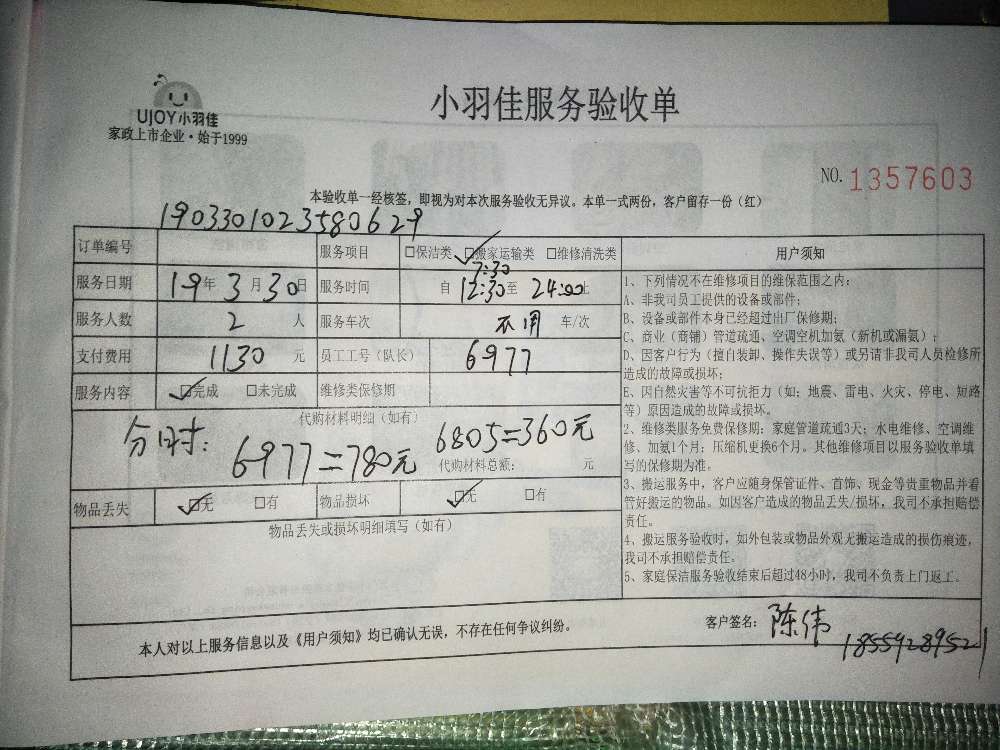 小羽佳服务验收单
UJOY小羽佳
家政上市企业·始于1999
NO. 1357603
本验收单一经核签，即视为对本次服务验收无异议。本单一式两份，客户留存一份（红）
1903301023580629
订单编号 服务项目 □保洁类 ☑搬家运输类 □维修清洗类
服务日期 19年3月30日 服务时间 自 7:30 12:30至 24:00止
服务人数 2 人 服务车次 不用 车/次
支付费用 1130 元 员工工号（队长） 6977
服务内容 ☑完成 □未完成 维修类保修期
代购材料明细（如有）
分时： 6977=780元 6805=360元
代购材料总额： 元
物品丢失 ☑无 □有 物品损坏 ☑无 □有
物品丢失或损坏明细填写（如有）
用户须知
1、下列情况不在维修项目的维保范围之内：
A、非我司员工提供的设备或部件；
B、设备或部件本身已经超过出厂保修期；
C、商业（商铺）管道疏通、空调空机加氨（新机或漏氨）；
D、因客户行为（擅自装卸、操作失误等）或另请非我司人员检修所
造成的故障或损坏；
E、因自然灾害等不可抗拒力（如：地震、雷电、火灾、停电、短路
等）原因造成的故障或损坏。
2、维修类服务免费保修期：家庭管道疏通3天；水电维修、空调维
修、加氨1个月；压缩机更换6个月。其他维修项目以服务验收单填
写的保修期为准。
3、搬运服务中，客户应随身保管证件、首饰、现金等贵重物品并看
管好搬运的物品。如因客户造成的物品丢失/损坏，我司不承担赔偿
责任。
4、搬运服务验收时，如外包装或物品外观无搬运造成的损伤痕迹，
我司不承担赔偿责任。
5、家庭保洁服务验收结束后超过48小时，我司不负责上门返工。
本人对以上服务信息以及《用户须知》均已确认无误，不存在任何争议纠纷。
客户签名： 陈伟
18559289521